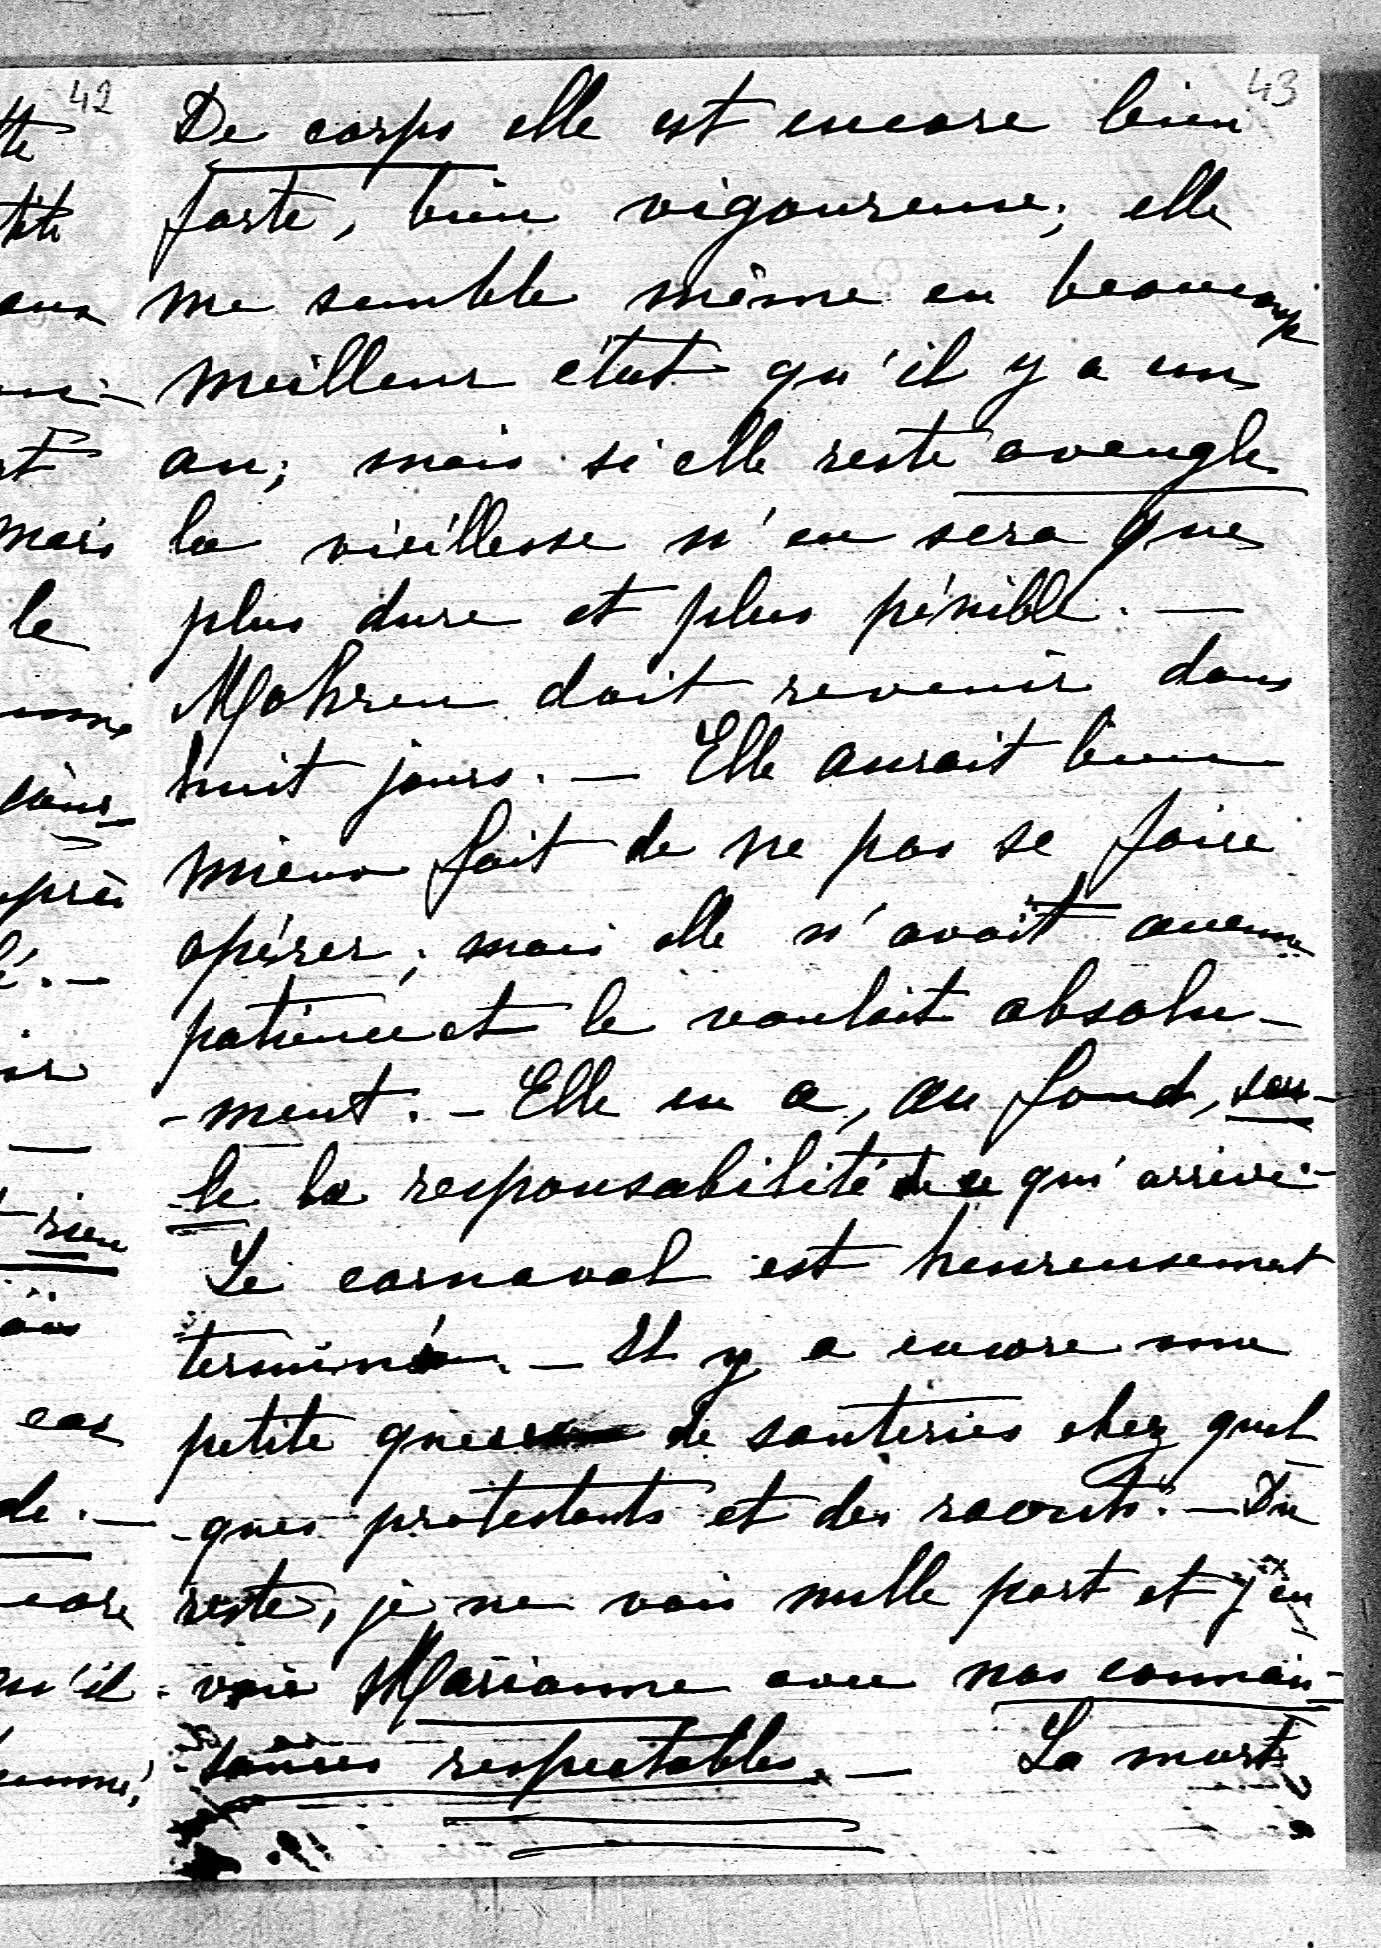 42
43
De corps elle est encore bien
forte, bien vigoureuse; elle
me semble même en beaucoup
meilleur état qu'il y a un
an; mais si elle reste aveugle
la vieillesse n'en sera que
plus dure et plus pénible. —
Mohren doit revenir dans
huit jours. — Elle aurait bien
mieux fait de ne pas se faire
opérer; mais elle n'avait aucune
patience et le voulait absolu-
-ment. — Elle en a, au fond, seu-
-le la responsabilité de ce qui arrive. -
Le carnaval est heureusement
terminé. — Il y a encore une
petite queue de sauteries chez quel
-ques protestants et des raouts. — Du
reste, je ne vais nulle part et j'en
-voie Marianne avec nos connais-
-sances respectables. — La mort